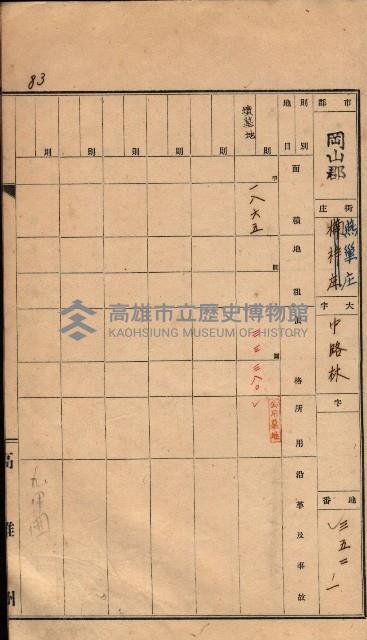 83
市郡
岡山郡
街庄
燕巢庄
楠梓庄
大字
中路林
字
地番
三五二ノ一
則別
地目
面積
地租
價格
所用沿革及事故
墳墓地
則
則
則
則
則
則
甲
一八六五
圓
圓
三三三八〇
公用墓地
高雄州
九甲圍
高雄市立歷史博物館
KAOHSIUNG MUSEUM OF HISTORY